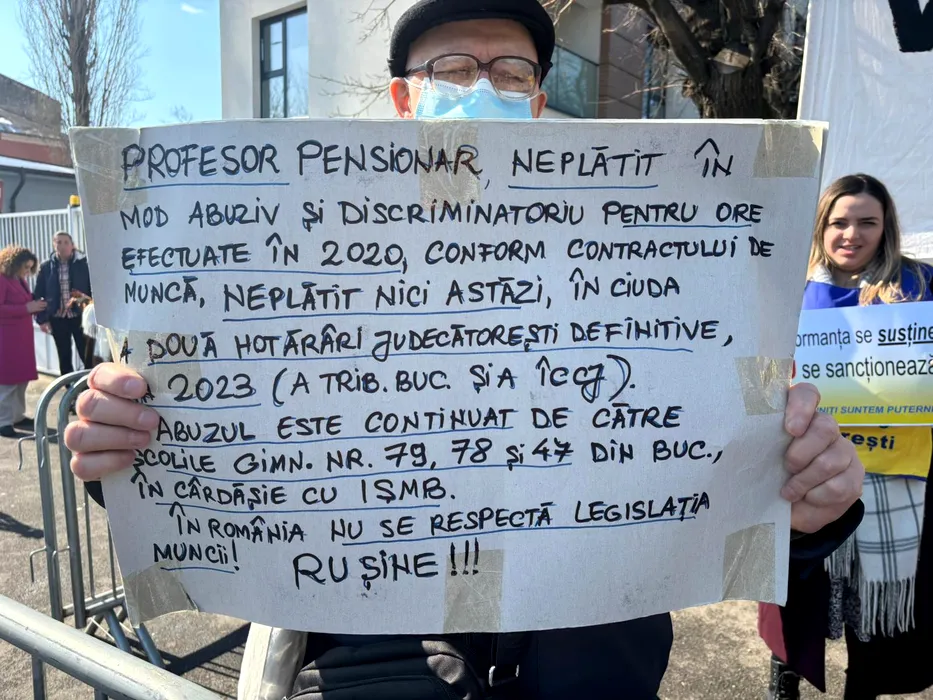 PROFESOR PENSIONAR, NEPLĂTIT ÎN
MOD ABUZIV ȘI DISCRIMINATORIU PENTRU ORE
EFECTUATE ÎN 2020, CONFORM CONTRACTULUI DE
MUNCĂ, NEPLĂTIT NICI ASTĂZI, ÎN CIUDA
A DOUĂ HOTĂRÂRI JUDECĂTOREȘTI DEFINITIVE,
2023 (A TRIB. BUC. ȘI A ÎCCJ).
ABUZUL ESTE CONTINUAT DE CĂTRE
ȘCOLILE GIMN. NR. 79, 78 ȘI 47 DIN BUC.,
ÎN CÂRDĂȘIE CU ISMB.
ÎN ROMÂNIA NU SE RESPECTĂ LEGISLAȚIA
MUNCII!
RUȘINE!!!
ormanța se susține
se sancționează
NIȚI SUNTEM PUTERNI
ești